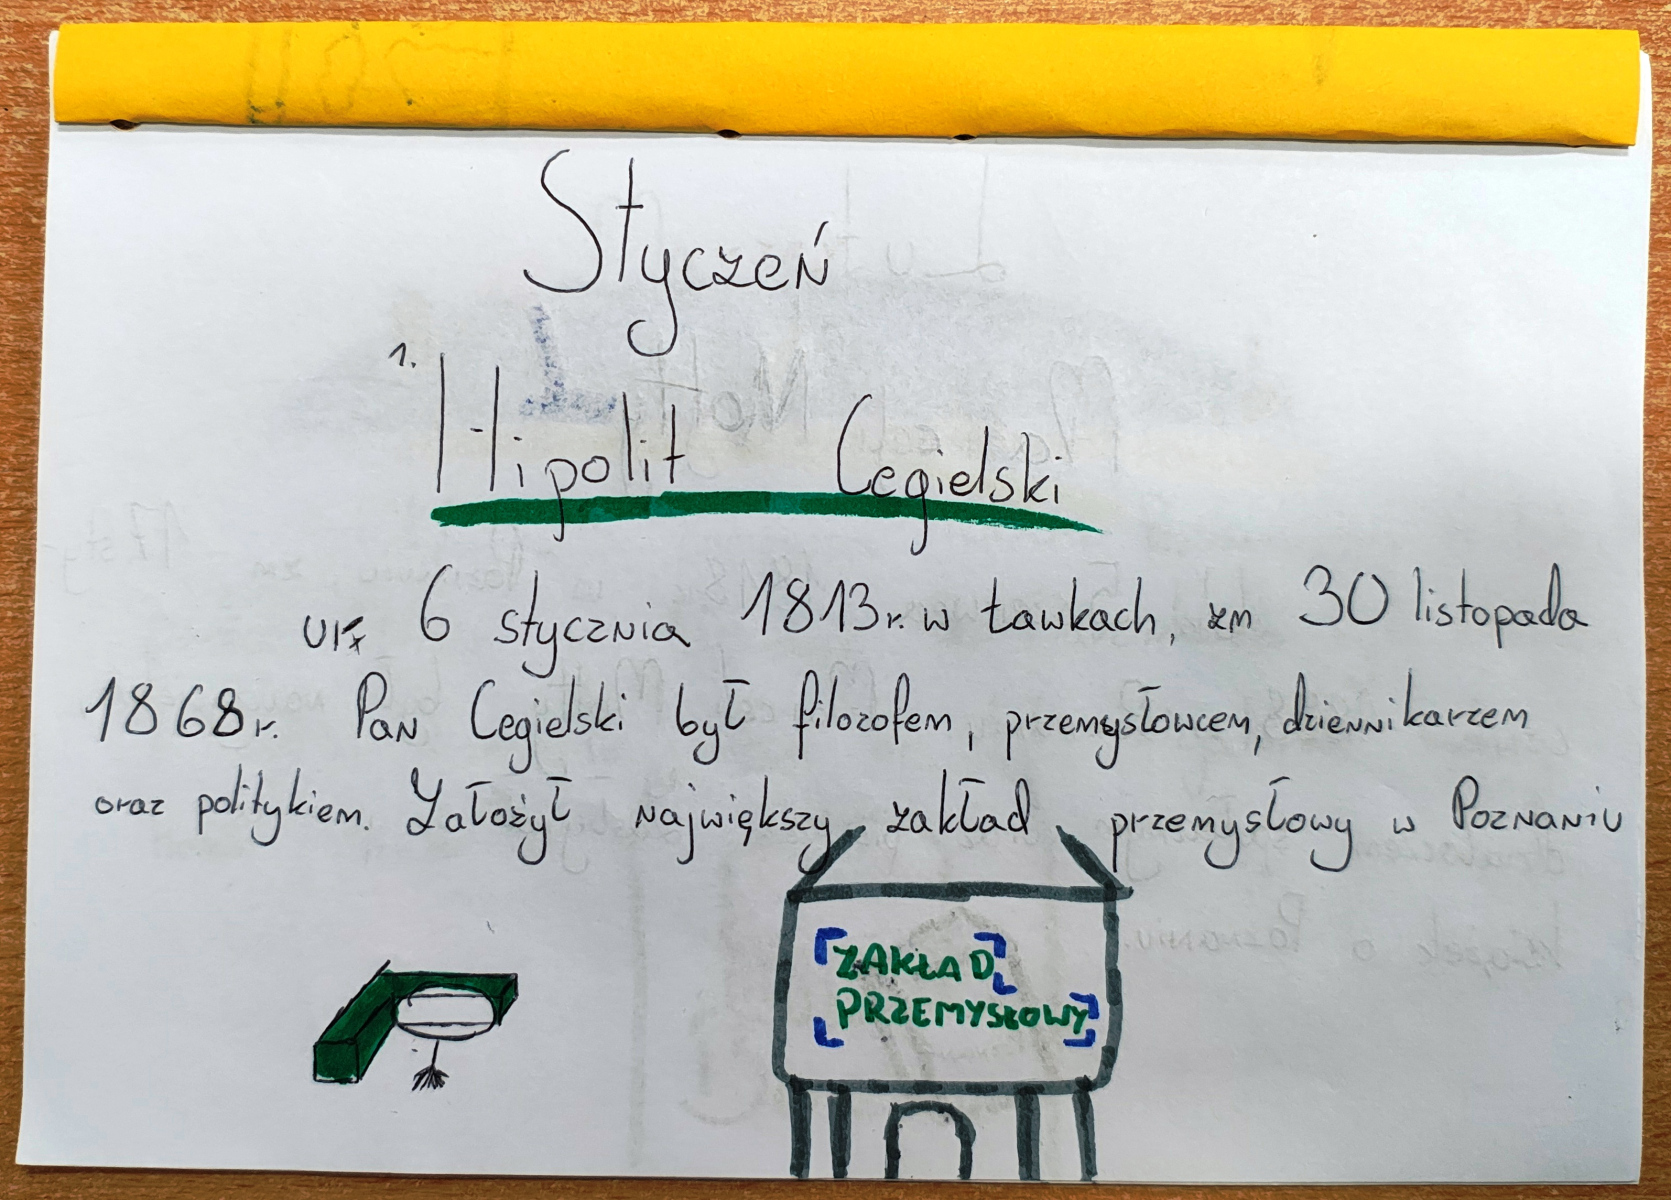 Styczeń
1.
Hipolit Cegielski
ur. 6 stycznia 1813r. w Ławkach, zm 30 listopada
1868r. Pan Cegielski był filozofem, przemysłowcem, dziennikarzem
oraz politykiem. Założył największy zakład przemysłowy w Poznaniu
ZAKŁAD
PRZEMYSŁOWY